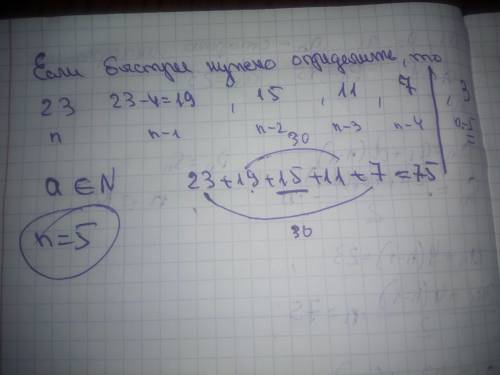 Если быстрее нужно определить, то
23 23-4=19, 15, 11, 7, 3
n n-1 n-2 n-3 n-4 n-5
30
a ∈ N 23+19+15+11+7=75
n=5 30